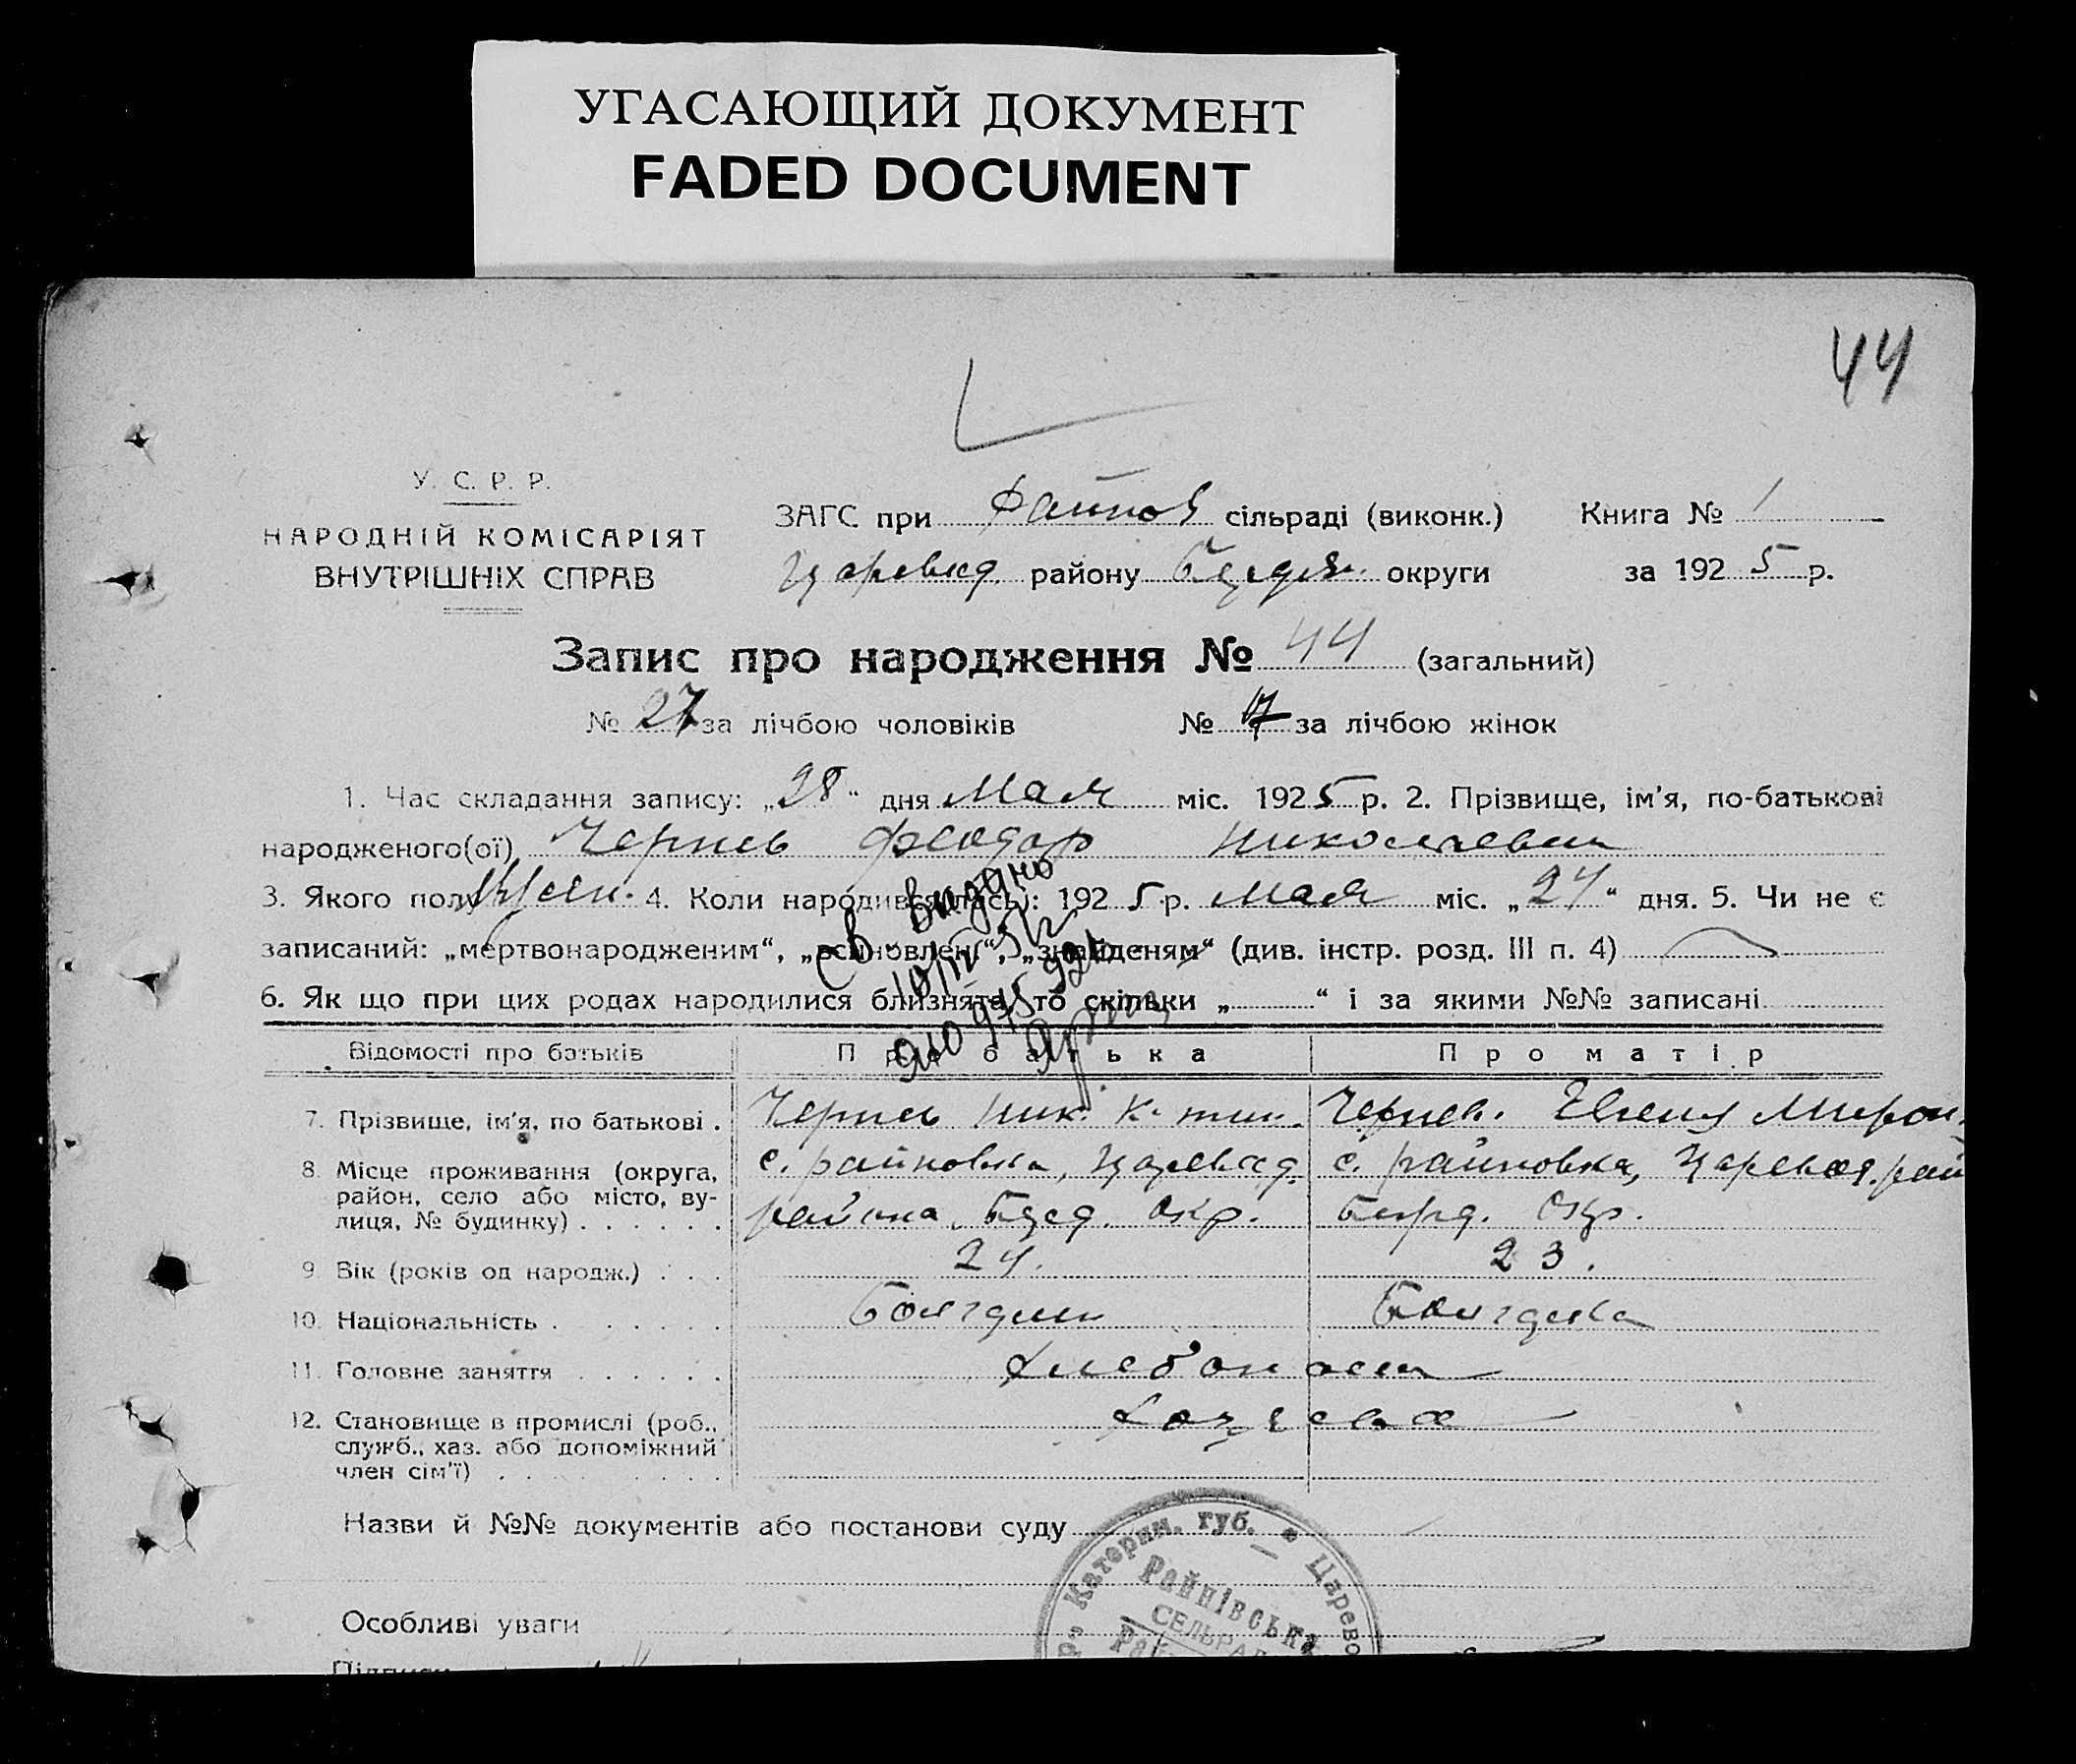 УГАСАЮЩИЙ ДОКУМЕНТ
FADED DOCUMENT
44
У. С. Р. Р.
НАРОДНІЙ КОМІСАРІЯТ
ВНУТРІШНІХ СПРАВ
ЗАГС при Райнов сільраді (виконк.) Книга № 1
Царевкд. району округи за 1925 р.
Запис про народження № 44 (загальний)
№ 27 за лічбою чоловіків № за лічбою жінок
1. Час складання запису: „28“ дня Мая міс. 1925 р. 2. Прізвище, ім'я, по-батькові
народженого(ої) Чернев Феодор Николаевич
3. Якого полу Муж. 4. Коли народився(лась): 1925 р. Мая міс. „24“ дня. 5. Чи не є
записаний: „мертвонародженим“, „всиновлен“, „знайденям“ (див. інстр. розд. III п. 4)
6. Як що при цих родах народилися близнята, то скільки „ “ і за якими №№ записані
Св. выдано
Відомості про батьків Про батька Про матір
7. Прізвище, ім'я, по батькові . Чернев Ник. Чернев. Мирон.
8. Місце проживання (округа, район, село або місто, вулиця, № будинку) . . . . . .
с. райновка, Царевкд. с. райновка, Царевкд. рай
района, окр. Окр.
9. Вік (років од народж.) . . . 24. 23.
10. Національність . . . . . . Болгарин Болгарка
11. Головне заняття . . . . . . Хлебопаш
12. Становище в промислі (роб., служб., хаз. або допоміжний член сім'ї) . . . . . . . Хозяева
Назви й №№ документів або постанови суду
Особливі уваги
Підписи
Катерин. губ. • Царево
Райнівська
СЕЛЬРАД